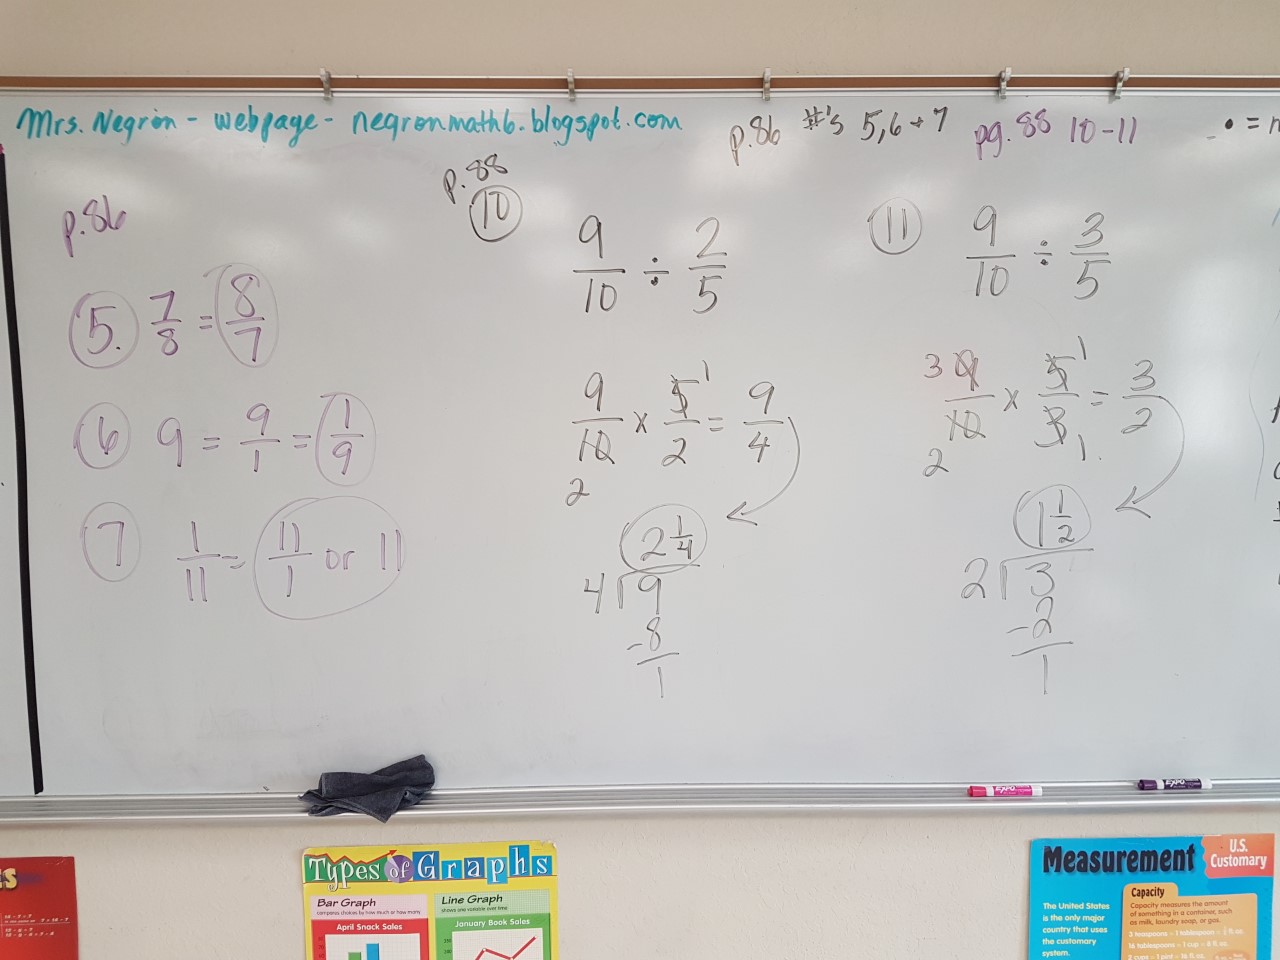 Mrs. Negron - webpage - negronmath6.blogspot.com
p.86 #'s 5,6 + 7
pg. 88 10-11
• =
p.86
5. 7/8 = 8/7
6 9 = 9/1 = 1/9
7 1/11 = 11/1 or 11
p.88
10
9/10 ÷ 2/5
9/10 x 5/2 = 9/4
1
2
2 1/4
4⟌9
-8
1
11
9/10 ÷ 3/5
9/10 x 5/3 = 3/2
3 1
2 1.
1 1/2
2⟌3
-2
1
Types of Graphs
Bar Graph
compares choices by how much or how many
April Snack Sales
Line Graph
shows one variable over time
January Book Sales
Measurement
U.S.
Customary
The United States
is the only major
country that uses
the customary
system.
Capacity
Capacity measures the amount
of something in a container, such
as milk, laundry soap, or gas.
3 teaspoons = 1 tablespoon = ½ fl oz.
16 tablespoons = 1 cup = 8 fl oz.
2 cups = 1 pint = 16 fl oz.